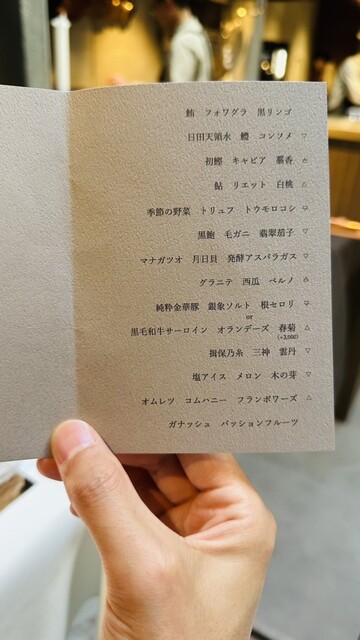 鮪 フォワグラ 黒リンゴ
日田天領水 鱧 コンソメ ▽
初鰹 キャビア 藁香 △
鮎 リエット 白桃 △
季節の野菜 トリュフ トウモロコシ ▽
黒鮑 毛ガニ 翡翠茄子 ▽
マナガツオ 月日貝 発酵アスパラガス ▽
グラニテ 西瓜 ペルノ △
純粋金華豚 銀象ソルト 根セロリ ▽
or
黒毛和牛サーロイン オランデーズ 春菊 △
(+3,000)
揖保乃糸 三神 雲丹 ▽
塩アイス メロン 木の芽 ▽
オムレツ コムハニー フランボワーズ △
ガナッシュ パッションフルーツ